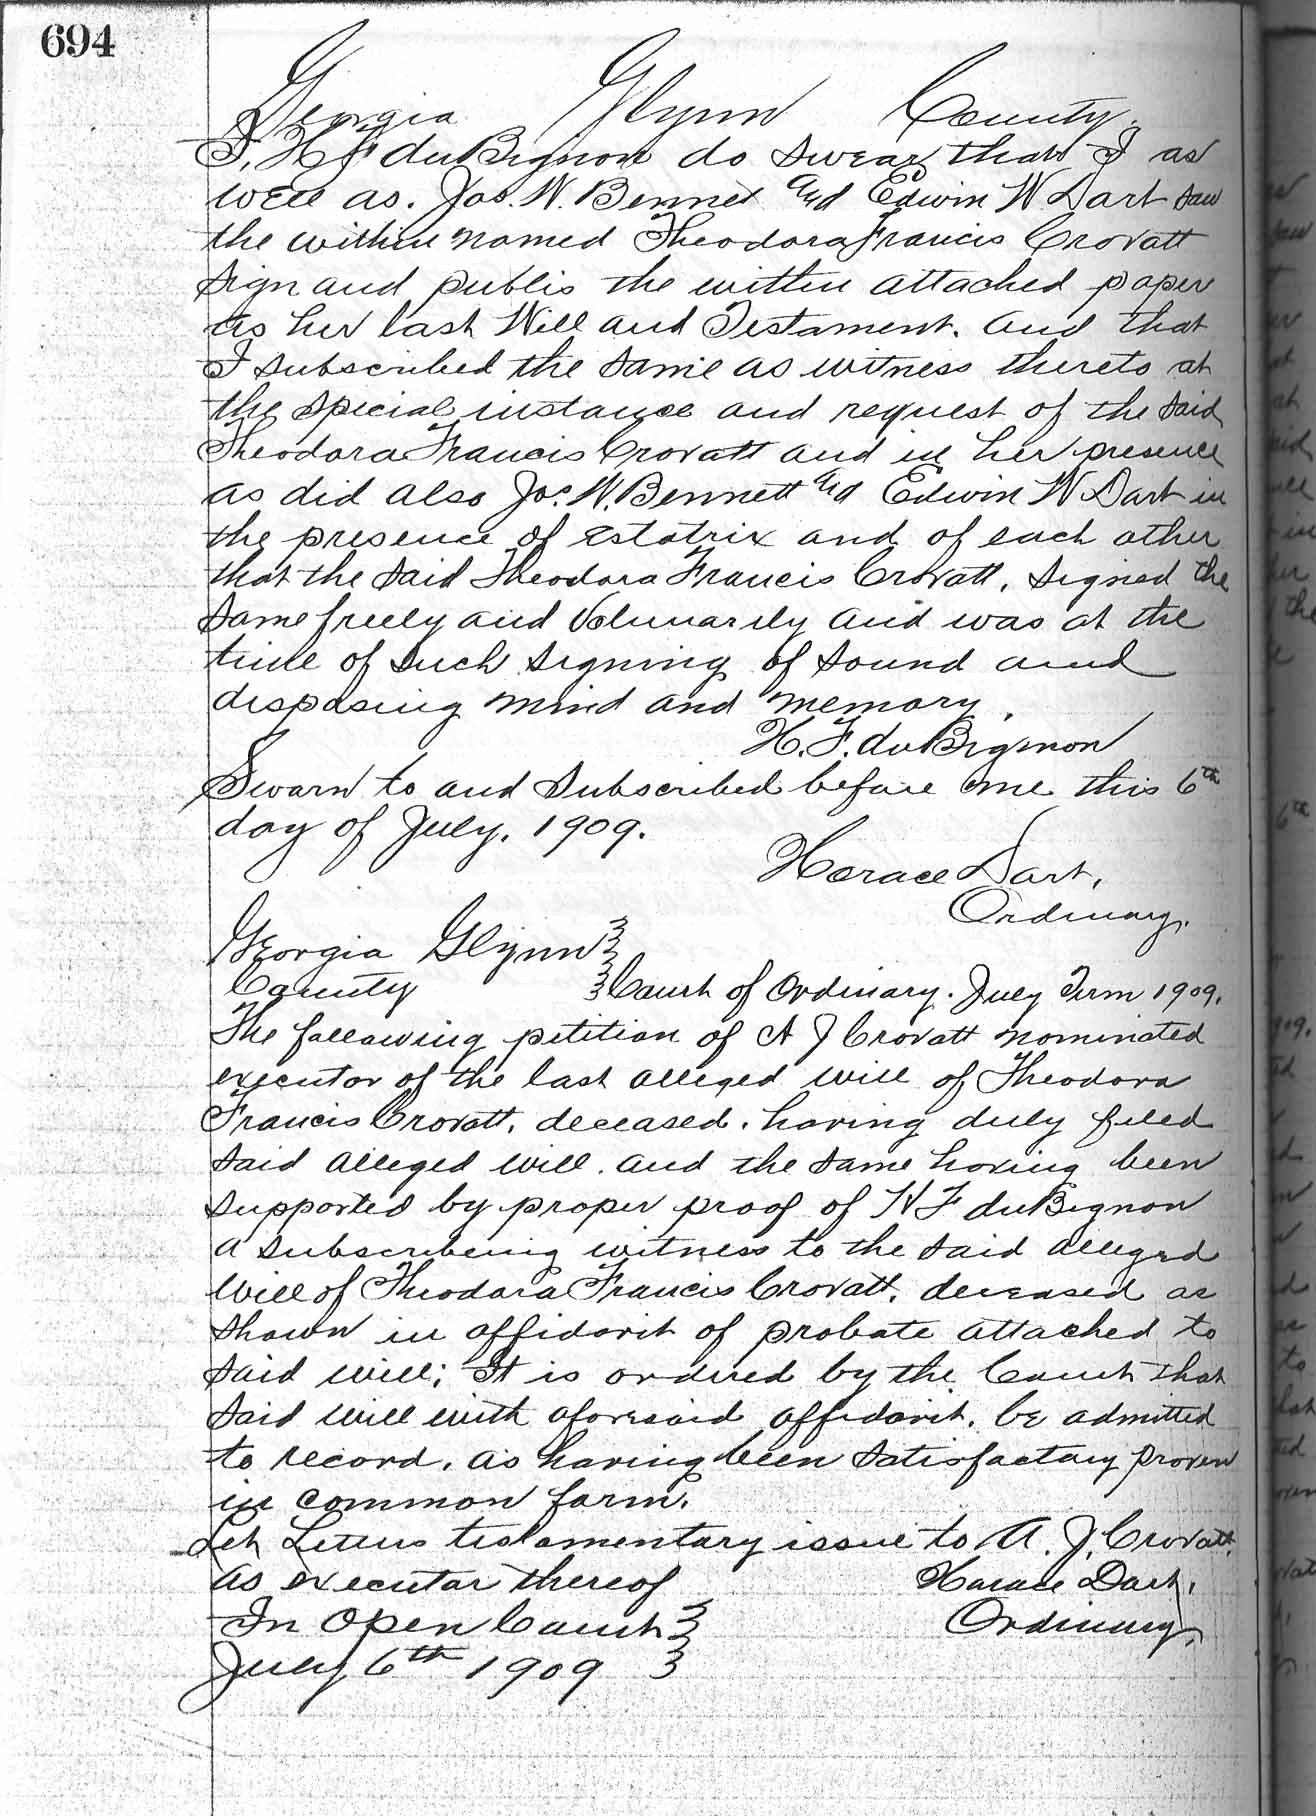 694
Georgia Glynn County.
I, H F duBignon do swear that I as
well as. Jos. W. Bennet and Edwin W Dart saw
the within named Theodora Francis Crovatt
sign and publis the within attached paper
as her last Will and Testament. and that
I subscribed the same as witness thereto at
the special instance and request of the said
Theodora Francis Crovatt and in her presence
as did also Jos. W. Bennett and Edwin W Dart in
the presence of estatrix and of each other
that the said Theodora Francis Crovatt. signed the
same freely and Volunarily and was at the
time of such signing of sound and
disposing mind and memory.
H. F. duBignon
Sworn to and subscribed before me this 6th
day of July. 1909.
Horace Dart,
Ordinary.
Georgia Glynn
County Court of Ordinary. July Term 1909.
The following petition of A J Crovatt nominated
executor of the last alleged will of Theodora
Francis Crovatt. deceased. having duly filed
said alleged will. and the same having been
supported by proper proof of H F duBignon
a subscribeing witness to the said alleged
Will of Theodora Francis Crovatt. deceased as
shown in affidavit of probate attached to
said will; It is ordered by the Court that
said will with aforesaid affidavit. be admitted
to record. as having been satisfactory proven
in common form.
Let Letters testamentary issue to A. J. Crovatt
as executor thereof Horace Dart,
In Open Court Ordinary.
July 6th 1909